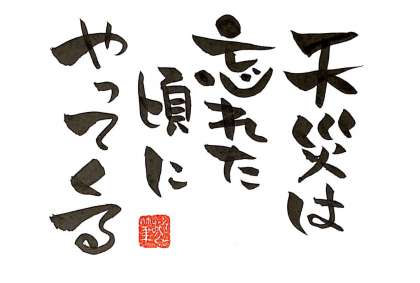 天災は
忘れた
頃に
やってくる